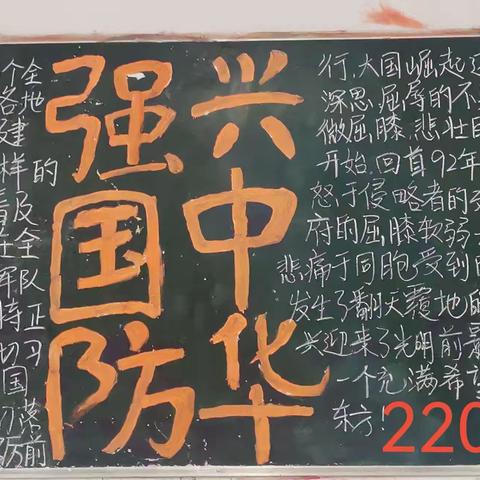 个全
各地
建
样的
及
全
军队
正
切习
国
落
前
强国防
兴中华
行,大国崛起
深思屈辱的不
微屈膝,悲壮
开始.回首92年
怒于侵略者的
府的屈膝软弱
悲痛于同胞受到
发生了翻天覆地的
兴迎来了光明前景
一个充满希望
东方!
220